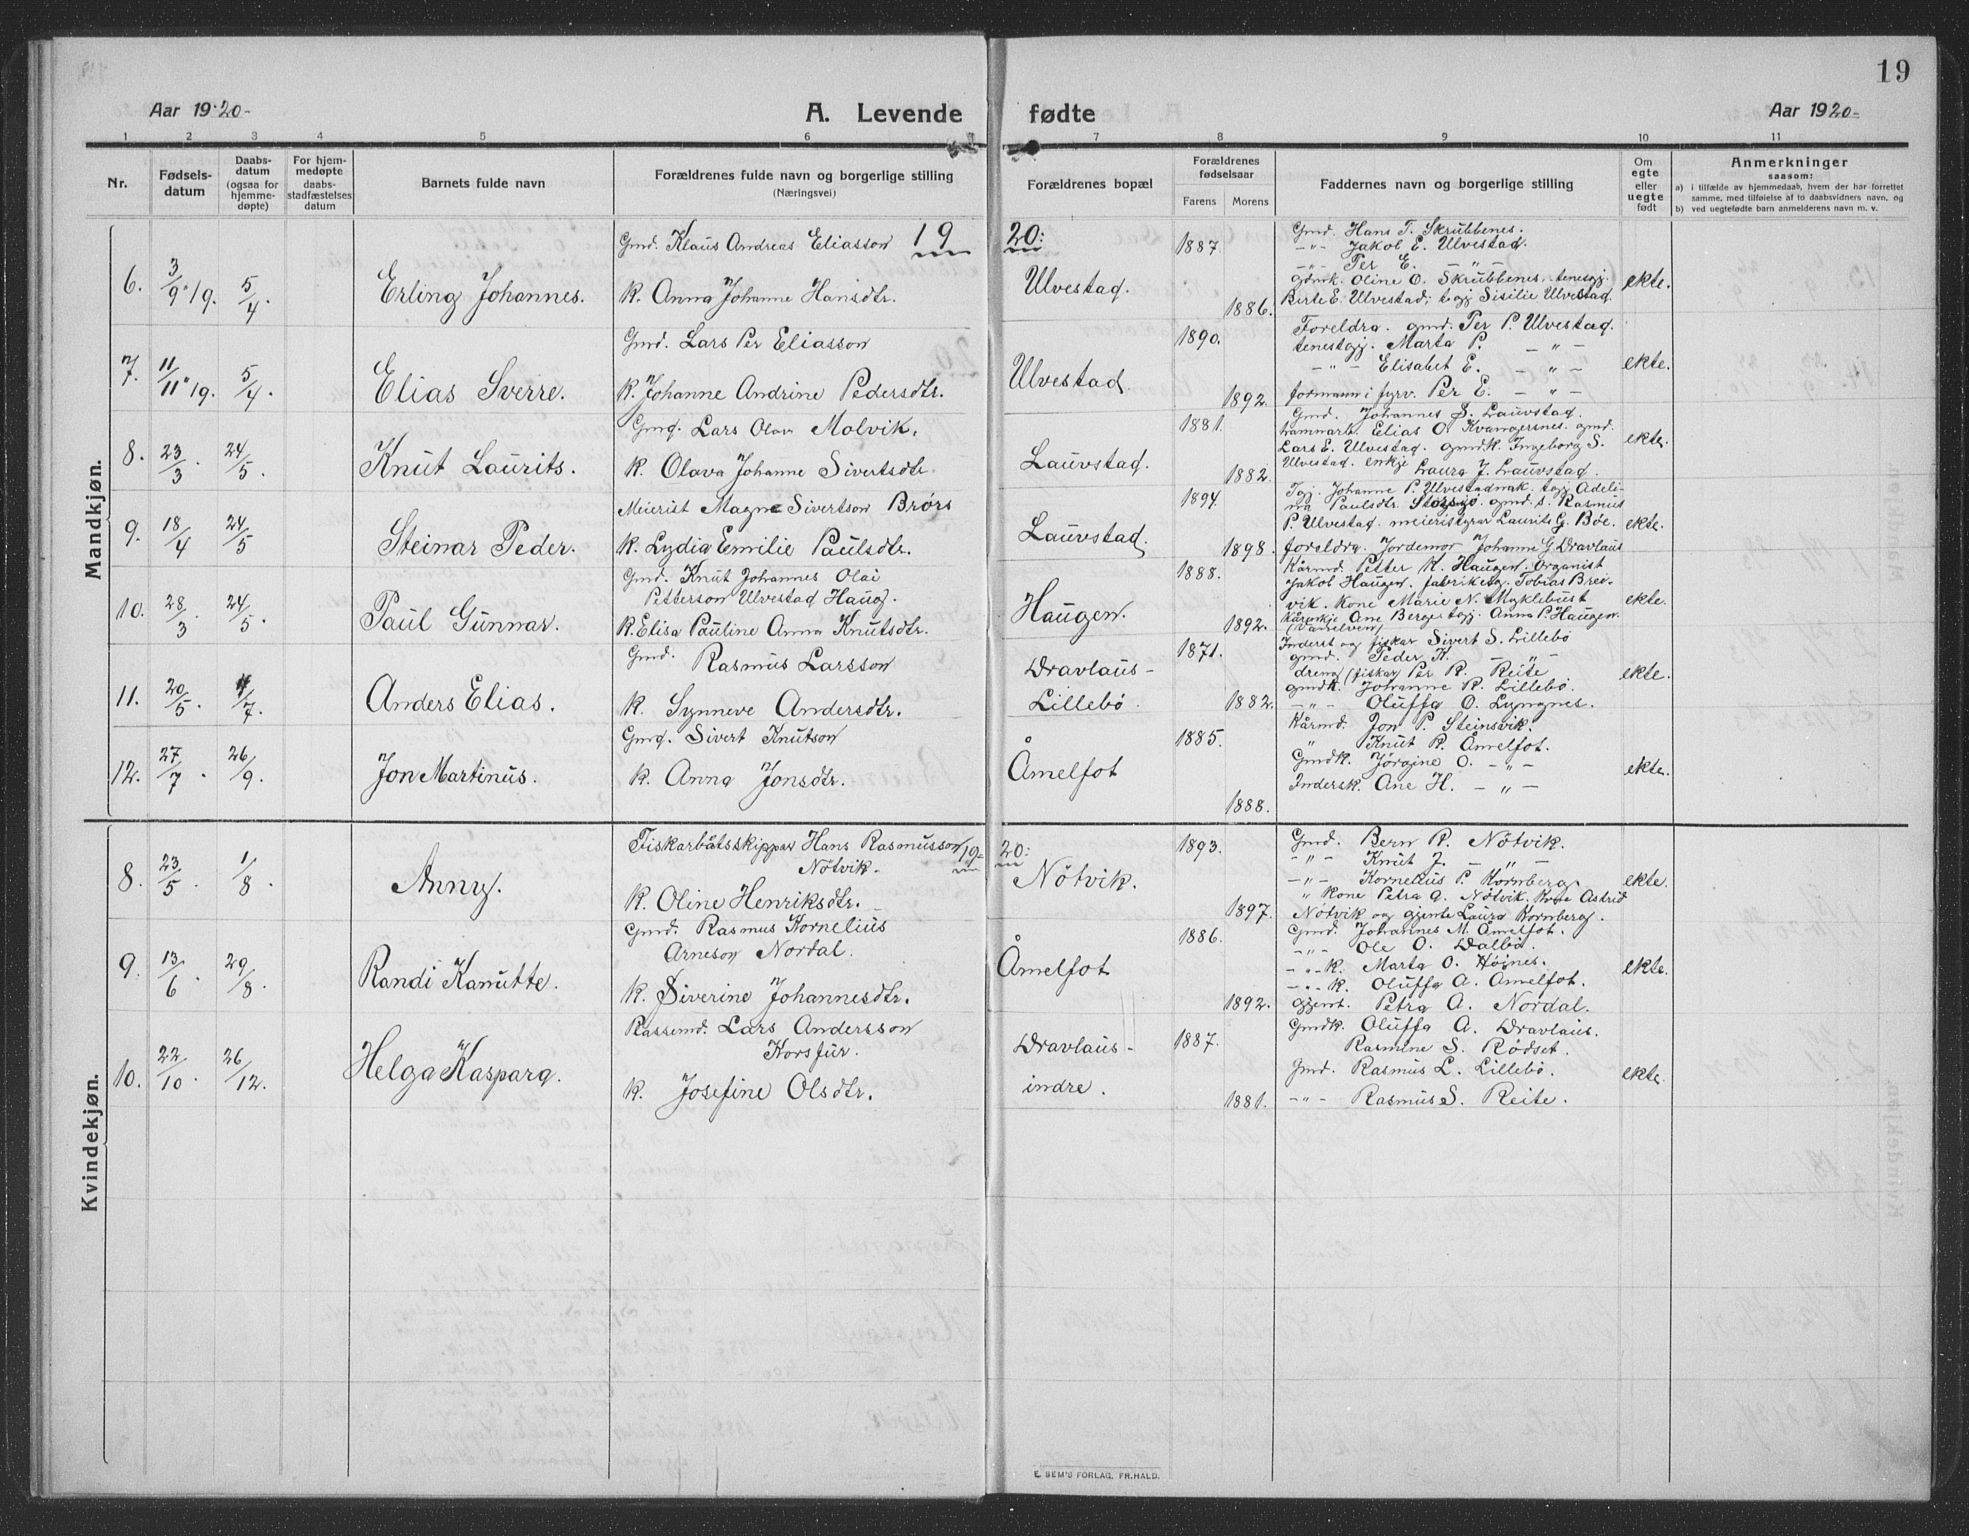 19
Aar 1920-
A. Levende fødte
Aar 1920-
1 2 3 4 5 6 7 8 9 10 11
Nr.
Fødsels-
datum
Daabs-
datum
(ogsaa for
hjemme-
døpte)
For hjem-
medøpte
daabs-
stadfæstelses
datum
Barnets fulde navn
Forældrenes fulde navn og borgerlige stilling
(Næringsvei)
Forældrenes bopæl
Forældrenes
fødselsaar
Farens Morens
Faddernes navn og borgerlige stilling
Om
egte
eller
uegte
født
Anmerkninger
saasom:
a) i tilfælde av hjemmedaab, hvem der har forrettet
samme, med tilføielse af to daabsvidners navn, og
b) ved uegtefødte barn anmelderens navn m. v.
Mandkjøn.
19 20:
6. 3/9 "19. 5/4 Erling Johannes.
Gmd. Klaus Andreas Eliasson
K. Anna Johanne Hansdtr.
Ulvestad.
1887. 1886.
Gmd. Hans T. Skrubbenes.
-"- Jakob E. Ulvestad.
-"- Per E. -"-
gdmk. Oline O. Skrubbenes. tenestgj.
Birte E. Ulvestad, tgj Sisilie Ulvestad.
ekte.
7. 11/11 "19. 5/4. Elias Sverre.
Gmd. Lars Per Eliasson
K. Johanne Andrine Pedersdtr.
Ulvestad
1890. 1892.
Foreldra. gmd. Per P. Ulvestad.
tenestgj. Marta P. -"-
-"- Elisabet E. -"-
formann i fyrv. Per E. -"-
ekte.
8. 23/3. 24/5. Knut Laurits.
Gmd. Lars Olav Molvik.
K. Olava Johanne Sivertsdtr.
Lauvstad.
1881. 1882.
Gmd. Johannes S. Lauvstad.
Elias O. Kvangersnes. gmd.
Lars E. Ulvestad. gmdk. Ingeborg S.
Ulvestad. enkje Laura J. Lauvstad.
ekte.
9. 18/4 24/5 Steinar Peder.
Meierist Magne Sivertson Brørs
K. Lydia Emilie Paulsdtr.
Lauvstad.
1894. 1898.
Tgj. Johanne P. Ulvestadnak. tgj Adeli-
na Paulsdtr. gmd. s. Rasmus
P. Ulvestad. meieristyrar Laurits G. Bøe.
foreldra. Jordemor Johanne G. Dravlaus
ekte.
10. 28/3 24/5. Paul Gunnar.
Gmd. Knut Johannes Olai
Petterson Ulvestad Haug.
K. Elisa Pauline Anna Knutsdtr.
Haugen.
1888. 1892.
Kårmd. Petter K. Haugen. Organist
Jakob Haugen. fabrikeig. Tobias Brei-
vik. Kone Marie N. Myklebust
Kårenkje Ane Berge tgj. Anna P. Haugen.
ekte.
11. 20/5 4/7. Anders Elias.
Gmd. Rasmus Larsson
K. Synneve Andersdtr.
Dravlaus-
Lillebø.
1871. 1882.
Inderst og fiskar Sivert S. Lillebø
gmd. Peder K. -"-
dreng (fiskar Per R. Reite
gmdk. Johanne R. Lillebø.
-"- Oluffa O. Lyngnes.
ekte.
12. 27/7. 26/9. Jon Martinus.
Gmd. Sivert Knutson
K. Anna Jonsdtr.
Åmelfot
1885. 1888.
Kårmd. Jon P. Steinsvik.
" Knut R. Åmelfot.
Gmdk. Jørgine O. -"-
Indersk. Ane H. -"-
ekte.
Kvindekjøn.
19- 20:
8. 23/5. 1/8. Anny.
Fiskarbåtsskippar Hans Rasmusson
Nøtvik.
K. Oline Henriksdtr.
Nøtvik.
1893. 1897.
Gmd. Bern R. Nøtvik.
-"- Knut J. -"-
-"- Kornelius P. Kornberg
" kone Petra A. Nøtvik. Kone Astrid
Nøtvik og gjente Laura Kornberg.
ekte.
9. 13/6 29/8. Randi Kanutte.
Gmd. Rasmus Kornelius
Arneson Nordal.
K. Siverine Johannesdtr.
Åmelfot
1886. 1892.
Gmd. Johannes M. Åmelfot.
-"- Ole O. Dalbø.
-"- K. Marta O. Højnes.
-"- K. Oluffa A. Åmelfot.
gjent. Petra A. Nordal.
ekte.
10. 22/10. 26/12. Helga Kaspara.
Rassemd. Lars Andersson
Korsfur.
K. Josefine Olsdtr.
Dravlaus-
indre.
1887. 1881.
Gmdk. Oluffa A. Dravlaus.
Rasmine S. Rødset.
Gmd. Rasmus L. Lillebø.
-"- Rasmus S. Reite.
ekte.
E. SEM'S FORLAG, FR.HALD.